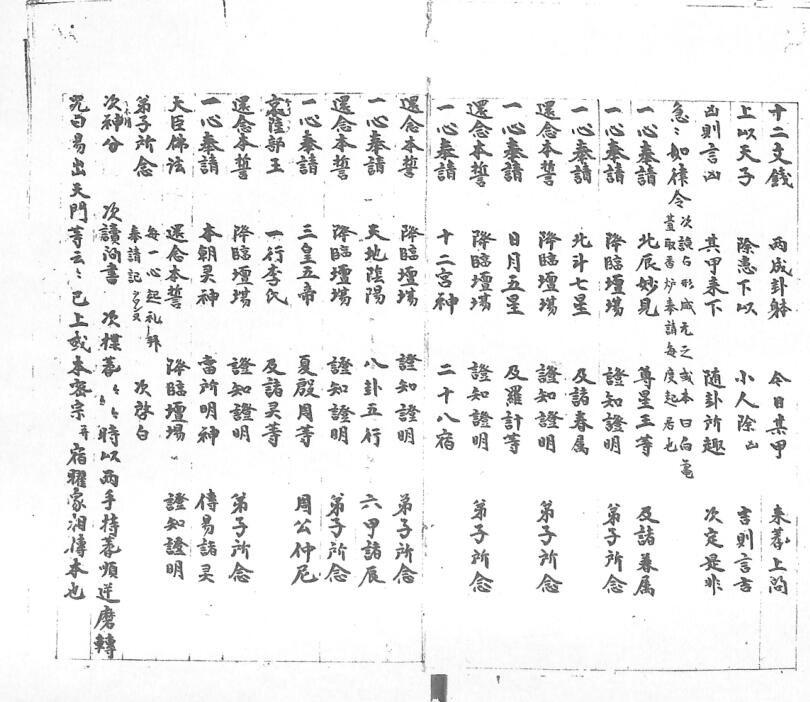 十二支錢 兩成卦躰 今日某甲 来蓍上問
上以天子 除患下以 小人除凶 吉則言吉
凶則言凶 某甲来下 随卦所趣 次定是非
急〻如律令
一心奉請 北辰妙見 尊星王等 及諸眷属
還念本誓 降臨壇場 證知證明 弟子所念
一心奉請 北斗七星 及諸眷属
還念本誓 降臨壇場 證知證明 弟子所念
一心奉請 日月五星 及羅計等
還念本誓 降臨壇場 證知證明 弟子所念
一心奉請 十二宮神 二十八宿
還念本誓 降臨壇場 證知證明 弟子所念
一心奉請 天地陰陽 八卦五行 六甲諸辰
還念本誓 降臨壇場 證知證明 弟子所念
一心奉請 三皇五帝 夏殷周等 周公仲尼
京陸郭王 一行李氏 及諸灵等
還念本誓 降臨壇場 證知證明 弟子所念
一心奉請 本朝灵神 當所明神 傳易諸灵
大臣佛法 還念本誓 降臨壇場 證知證明
弟子所念 每一心起礼拜 奉請記 次啓白
次神分 次讀 書 次揲蓍〻〻時以兩手持蓍順逆磨轉
咒曰易出天門等云〻已上或本密宗并宿曜家相傳本也